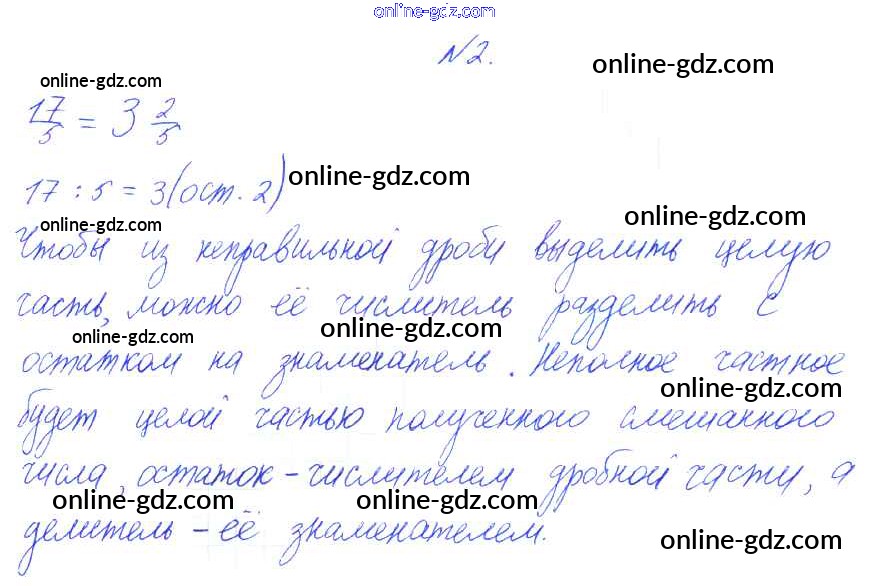 online-gdz.com
№2.
online-gdz.com
online-gdz.com
17/5 = 3 2/5
online-gdz.com
17 : 5 = 3 (ост. 2)
online-gdz.com
online-gdz.com
Чтобы из неправильной дроби выделить целую
часть, можно её числитель разделить с
online-gdz.com
online-gdz.com
остатком на знаменатель. Неполное частное
online-gdz.com
будет целой частью полученного смешанного
числа, остаток – числителем дробной части, а
online-gdz.com
online-gdz.com
online-gdz.com
делитель – её знаменателем.
online-gdz.com